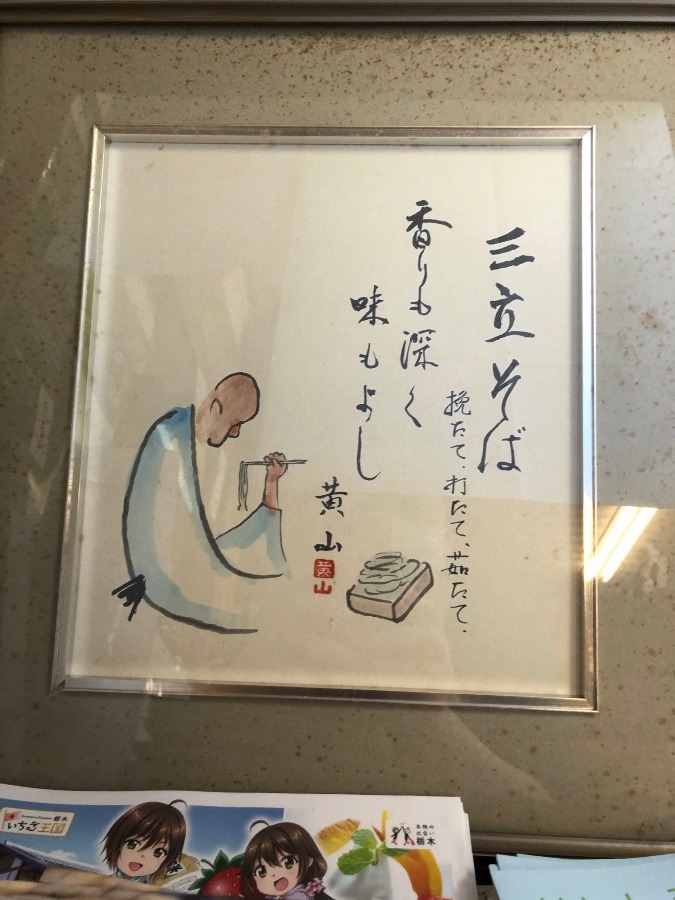 三立そば
挽たて、打たて、茹たて、
香りも深く
味もよし
黄山
黄山
いちご王国
栃木
本物の
出会い
栃木